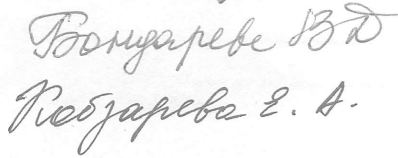 Бондареве ВД
Кобзарева Е. А.